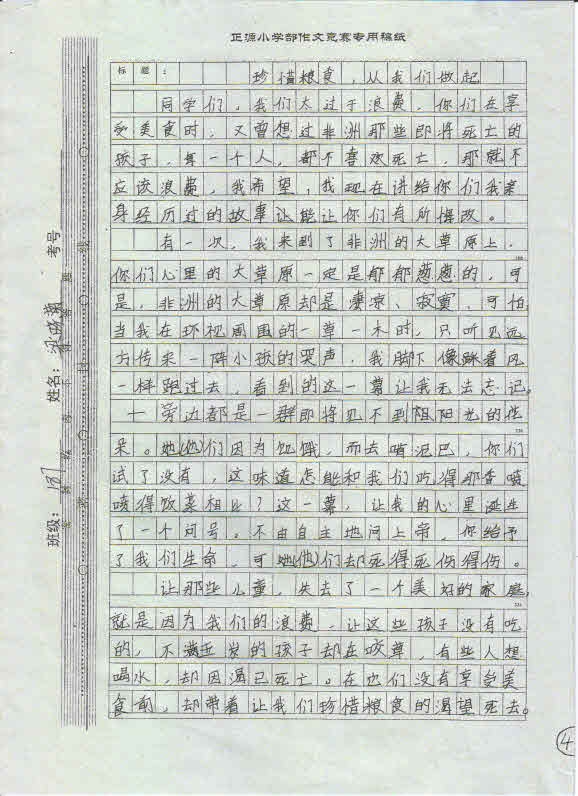 正源小学部作文竞赛专用稿纸
标题：
珍惜粮食，从我们做起
同学们，我们太过于浪费，你们在享
受美食时，又曾想过非洲那些即将死亡的
孩子，每一个人，都不喜欢死亡，那就不
应该浪费，我希望，我现在讲给你们我亲
身经历过的故事让能让你们有所悔改。
有一次，我来到了非洲的大草原上，
你们心里的大草原一定是郁郁葱葱的，可
是，非洲的大草原却是凄凉、寂寞、可怕
当我在环视周围的一草一木时，只听见远
方传来一阵小孩的哭声，我脚下像踩着风
一样跑过去，看到的这一幕让我无法忘记。
旁边都是一群即将见不到阳光的
呆。她(他)们因为饥饿，而去啃泥巴，你们
试了没有，这味道怎能和我们吃得那香喷
喷得饭菜相比？这一幕，让我的心里诞生
了一个问号。不由自主地问上帝，你给予
了我们生命，可她(他)们却死得死伤得伤。
让那些儿童，失去了一个美好的家庭，
就是因为我们的浪费，让这些孩子没有吃
的，不满五岁的孩子却在咬草，有些人想
喝水，却因渴已死亡。在他们没有享受美
食前，却带着让我们珍惜粮食的渴望死去。
班级：187
姓名：
考号
4